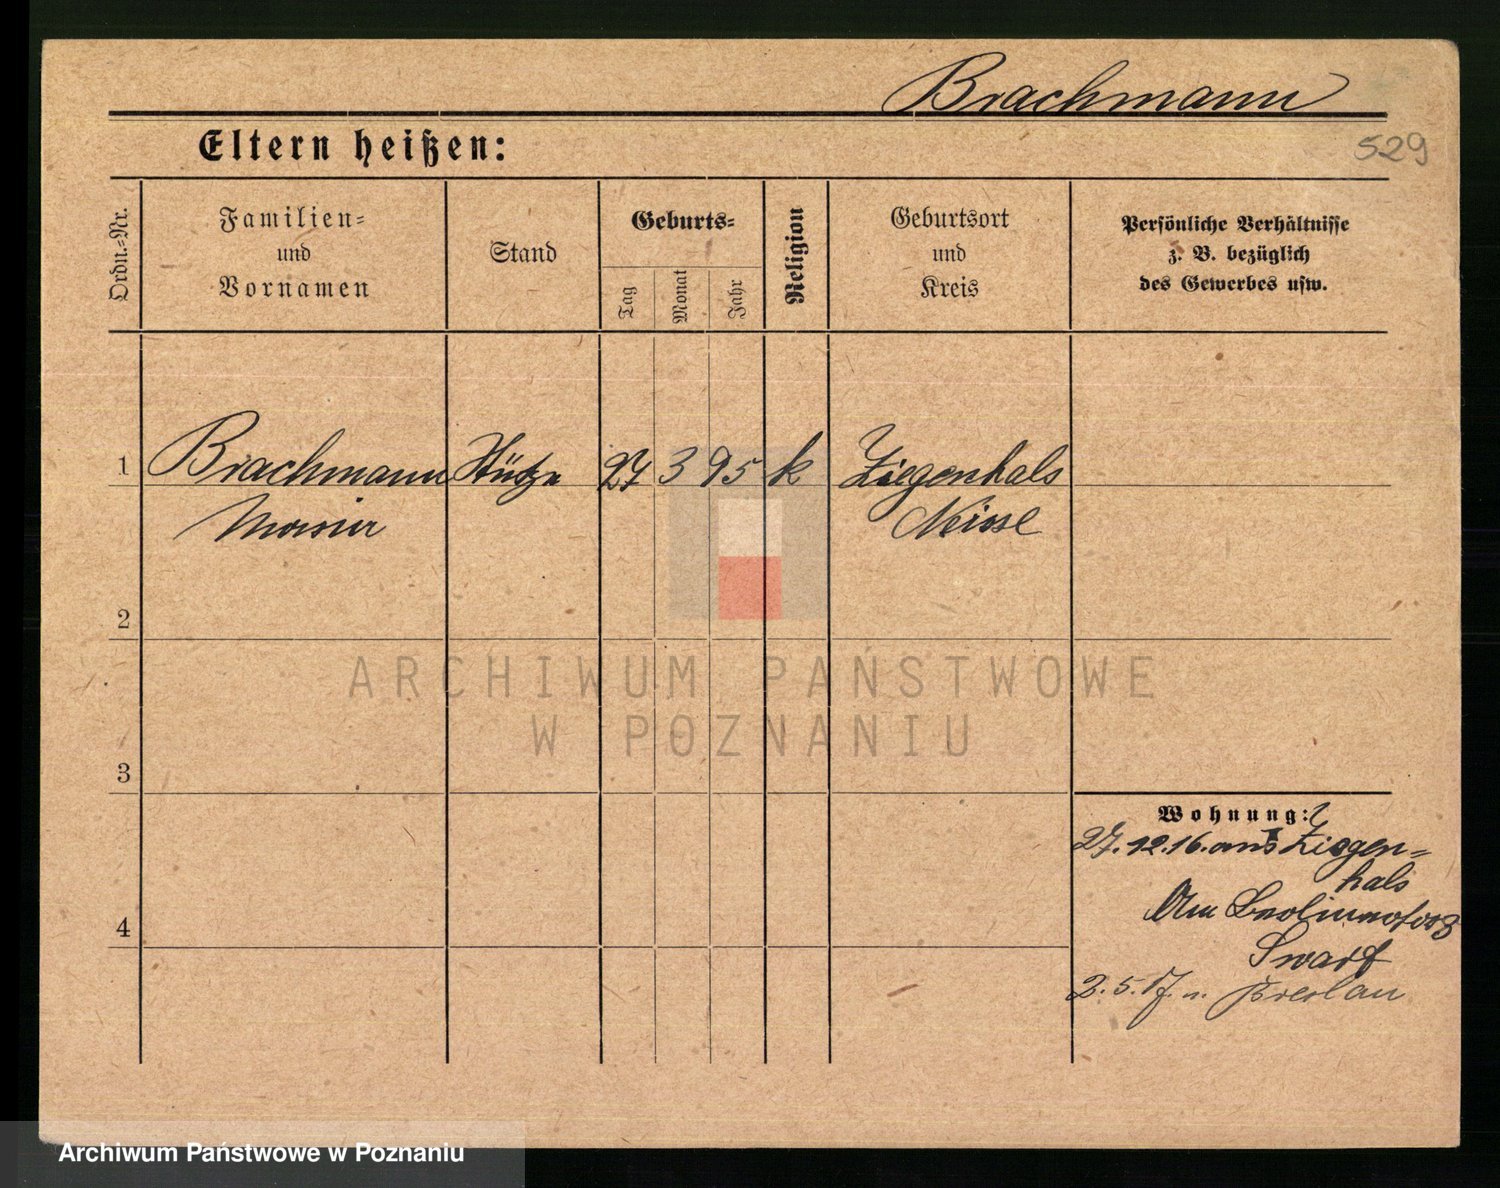 Brachmann
529
Eltern heißen:
Ordn.-Nr.
Familien-
und
Vornamen
Stand
Geburts-
Tag
Monat
Jahr
Religion
Geburtsort
und
Kreis
Persönliche Verhältnisse
z. B. bezüglich
des Gewerbes usw.
1 Brachmann Stütze 27 3 95 k Ziegenhals
Neisse
2
3
4
Wohnung:
27.12.16. aus Ziegen=
hals
Am Berliner
3.5.17. n. Breslau
ARCHIWUM PAŃSTWOWE
W POZNANIU
Archiwum Państwowe w Poznaniu